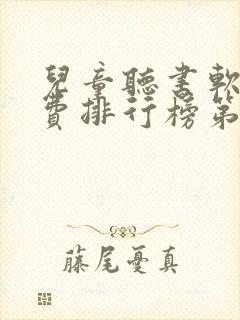 兒童聽書軟
費排行榜第
藤尾憂真